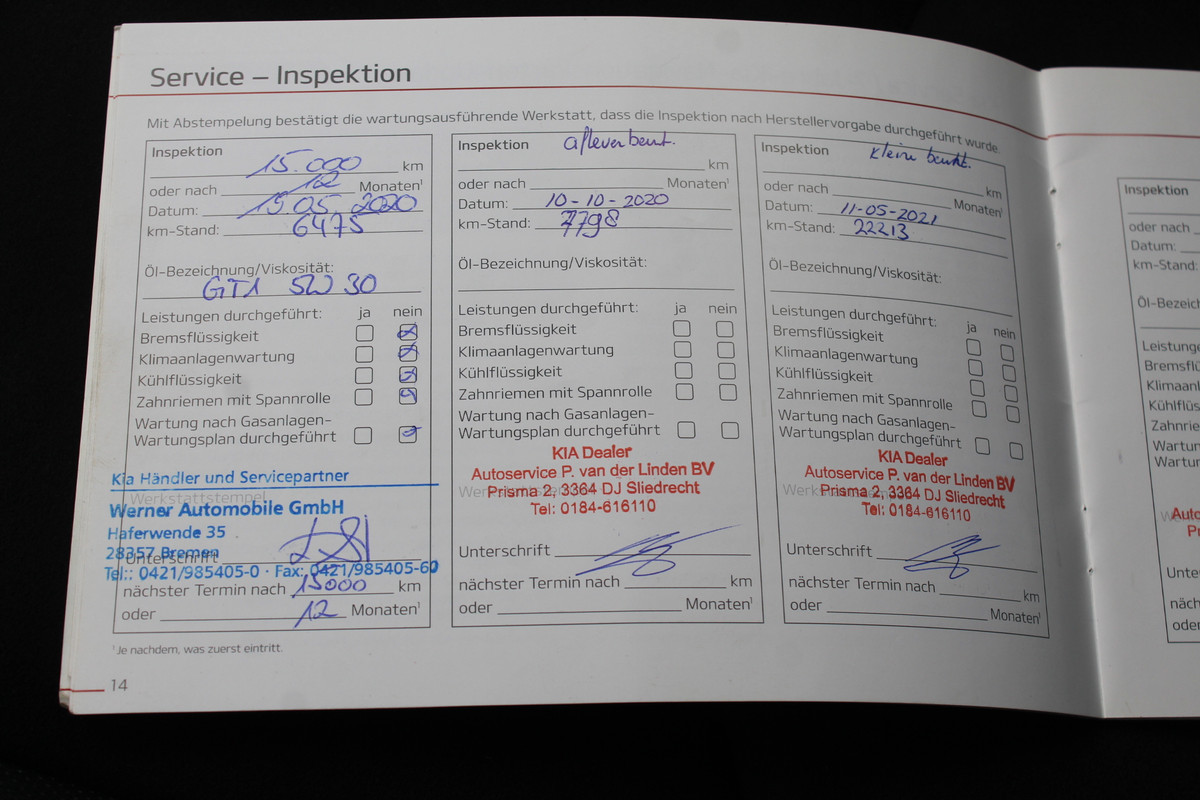 Service – Inspektion
Mit Abstempelung bestätigt die wartungsausführende Werkstatt, dass die Inspektion nach Herstellervorgabe durchgeführt wurde.
Inspektion
15.000 km
oder nach 12 Monaten¹
Datum: 15.05.2020
km-Stand: 6475
Öl-Bezeichnung/Viskosität:
GT1 5W 30
Leistungen durchgeführt: ja nein
Bremsflüssigkeit
Klimaanlagenwartung
Kühlflüssigkeit
Zahnriemen mit Spannrolle
Wartung nach Gasanlagen-
Wartungsplan durchgeführt
Kia Händler und Servicepartner
Werkstattstempel
Werner Automobile GmbH
Haferwende 35
28357 Bremen
Unterschrift
Tel:: 0421/985405-0 · Fax: 0421/985405-60
nächster Termin nach 15000 km
oder 12 Monaten¹
Inspektion aflever beurt.
km
oder nach Monaten¹
Datum: 10-10-2020
km-Stand: 7798
Öl-Bezeichnung/Viskosität:
Leistungen durchgeführt: ja nein
Bremsflüssigkeit
Klimaanlagenwartung
Kühlflüssigkeit
Zahnriemen mit Spannrolle
Wartung nach Gasanlagen-
Wartungsplan durchgeführt
KIA Dealer
Autoservice P. van der Linden BV
Prisma 2, 3364 DJ Sliedrecht
Tel: 0184-616110
Unterschrift
nächster Termin nach km
oder Monaten¹
Inspektion kleine beurt.
km
oder nach Monaten¹
Datum: 11-05-2021
km-Stand: 22213
Öl-Bezeichnung/Viskosität:
Leistungen durchgeführt: ja nein
Bremsflüssigkeit
Klimaanlagenwartung
Kühlflüssigkeit
Zahnriemen mit Spannrolle
Wartung nach Gasanlagen-
Wartungsplan durchgeführt
KIA Dealer
Autoservice P. van der Linden BV
Prisma 2, 3364 DJ Sliedrecht
Tel: 0184-616110
Unterschrift
nächster Termin nach km
oder Monaten¹
¹ Je nachdem, was zuerst eintritt.
14
Inspektion
oder nach
Datum:
km-Stand:
Öl-Bezeich
Leistunge
Bremsflü
Klimaan
Kühlflüs
Zahnrie
Wartun
Wartu
Auto
Pr
Unter
näch
oder